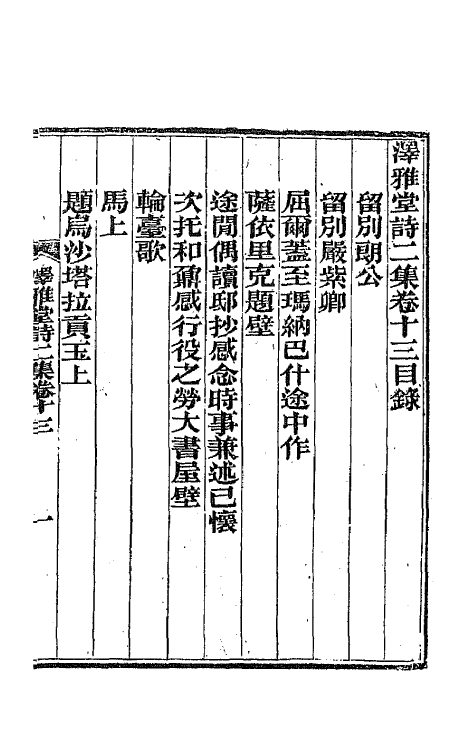 澤雅堂詩二集卷十三目錄
留別朗公
留別嚴紫卿
屈爾蓋至瑪納巴什途中作
薩依里克題壁
途閒偶讀邸抄感念時事兼述己懷
次托和鼐感行役之勞大書屋壁
輪臺歌
馬上
題烏沙塔拉貢玉上
澤雅堂詩二集卷十三
一